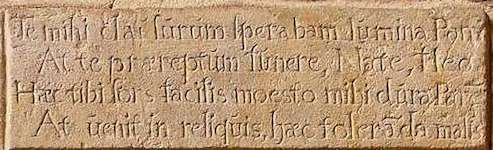 Te mihi clausurum sperabam lumina
At te præreptum funere, Nate, fleo
Hæc tibi sors facilis moesto mihi dura
At uenit in reliquis, hæc tolerāda malis